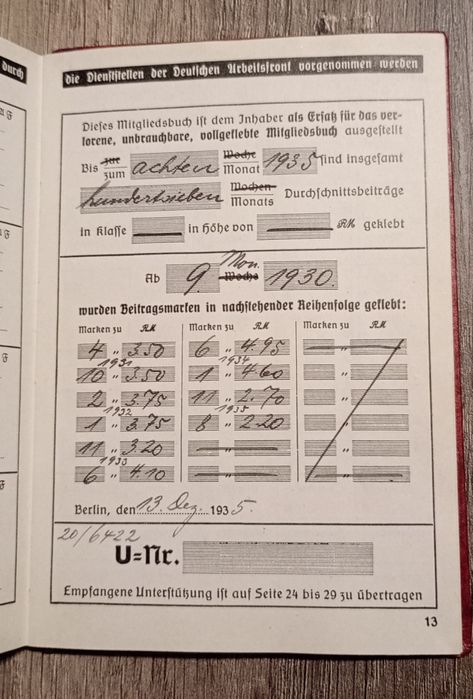 durch
die Dienststellen der Deutschen Arbeitsfront vorgenommen werden
Dieses Mitgliedsbuch ist dem Inhaber als Ersatz für das ver-
lorene, unbrauchbare, vollgeklebte Mitgliedsbuch ausgestellt
Bis zur Woche
zum achten Monat 1935 sind insgesamt
hundertsieben Wochen- Monats Durchschnittsbeiträge
in Klasse in Höhe von RM geklebt
Mon.
Ab 9. Woche 1930.
wurden Beitragsmarken in nachstehender Reihenfolge geklebt:
Marken zu RM Marken zu RM Marken zu RM
4 " 3.50 6 " 4.95 "
1931 1934
10 " 3.50 1 " 4.60 "
2 " 3.75 11 " 2.70 "
1932 1935
1 " 3.75 8 " 2.20 "
11 " 3.20 " "
1933
6 " 4.10 " "
Berlin, den 13. Dez. 1935.
20/6422
U=Nr.
Empfangene Unterstützung ist auf Seite 24 bis 29 zu übertragen
13